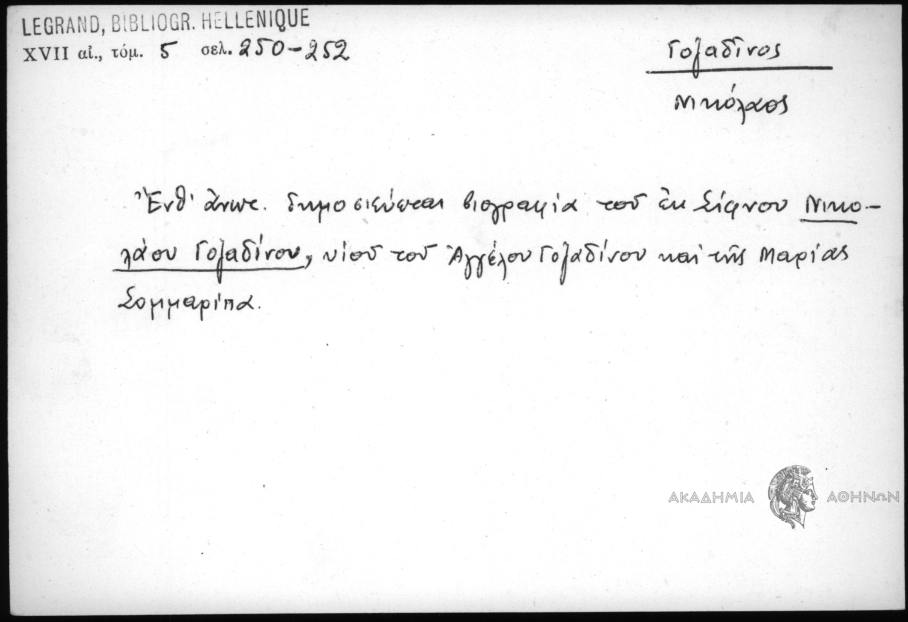 LEGRAND, BIBLIOGR. HELLENIQUE
XVII αἰ., τόμ. 5 σελ. 250-252
Γοζαδῖνος
Νικόλαος
Ἐνθ' ἀνωτ. δημοσιεύεται βιογραφία τοῦ ἐκ Σίφνου Νικο-
λάου Γοζαδίνου, υἱοῦ τοῦ Ἀγγέλου Γοζαδίνου καὶ τῆς Μαρίας
Σομμαρίπα.
ΑΚΑΔΗΜΙΑ ΑΘΗΝΩΝ